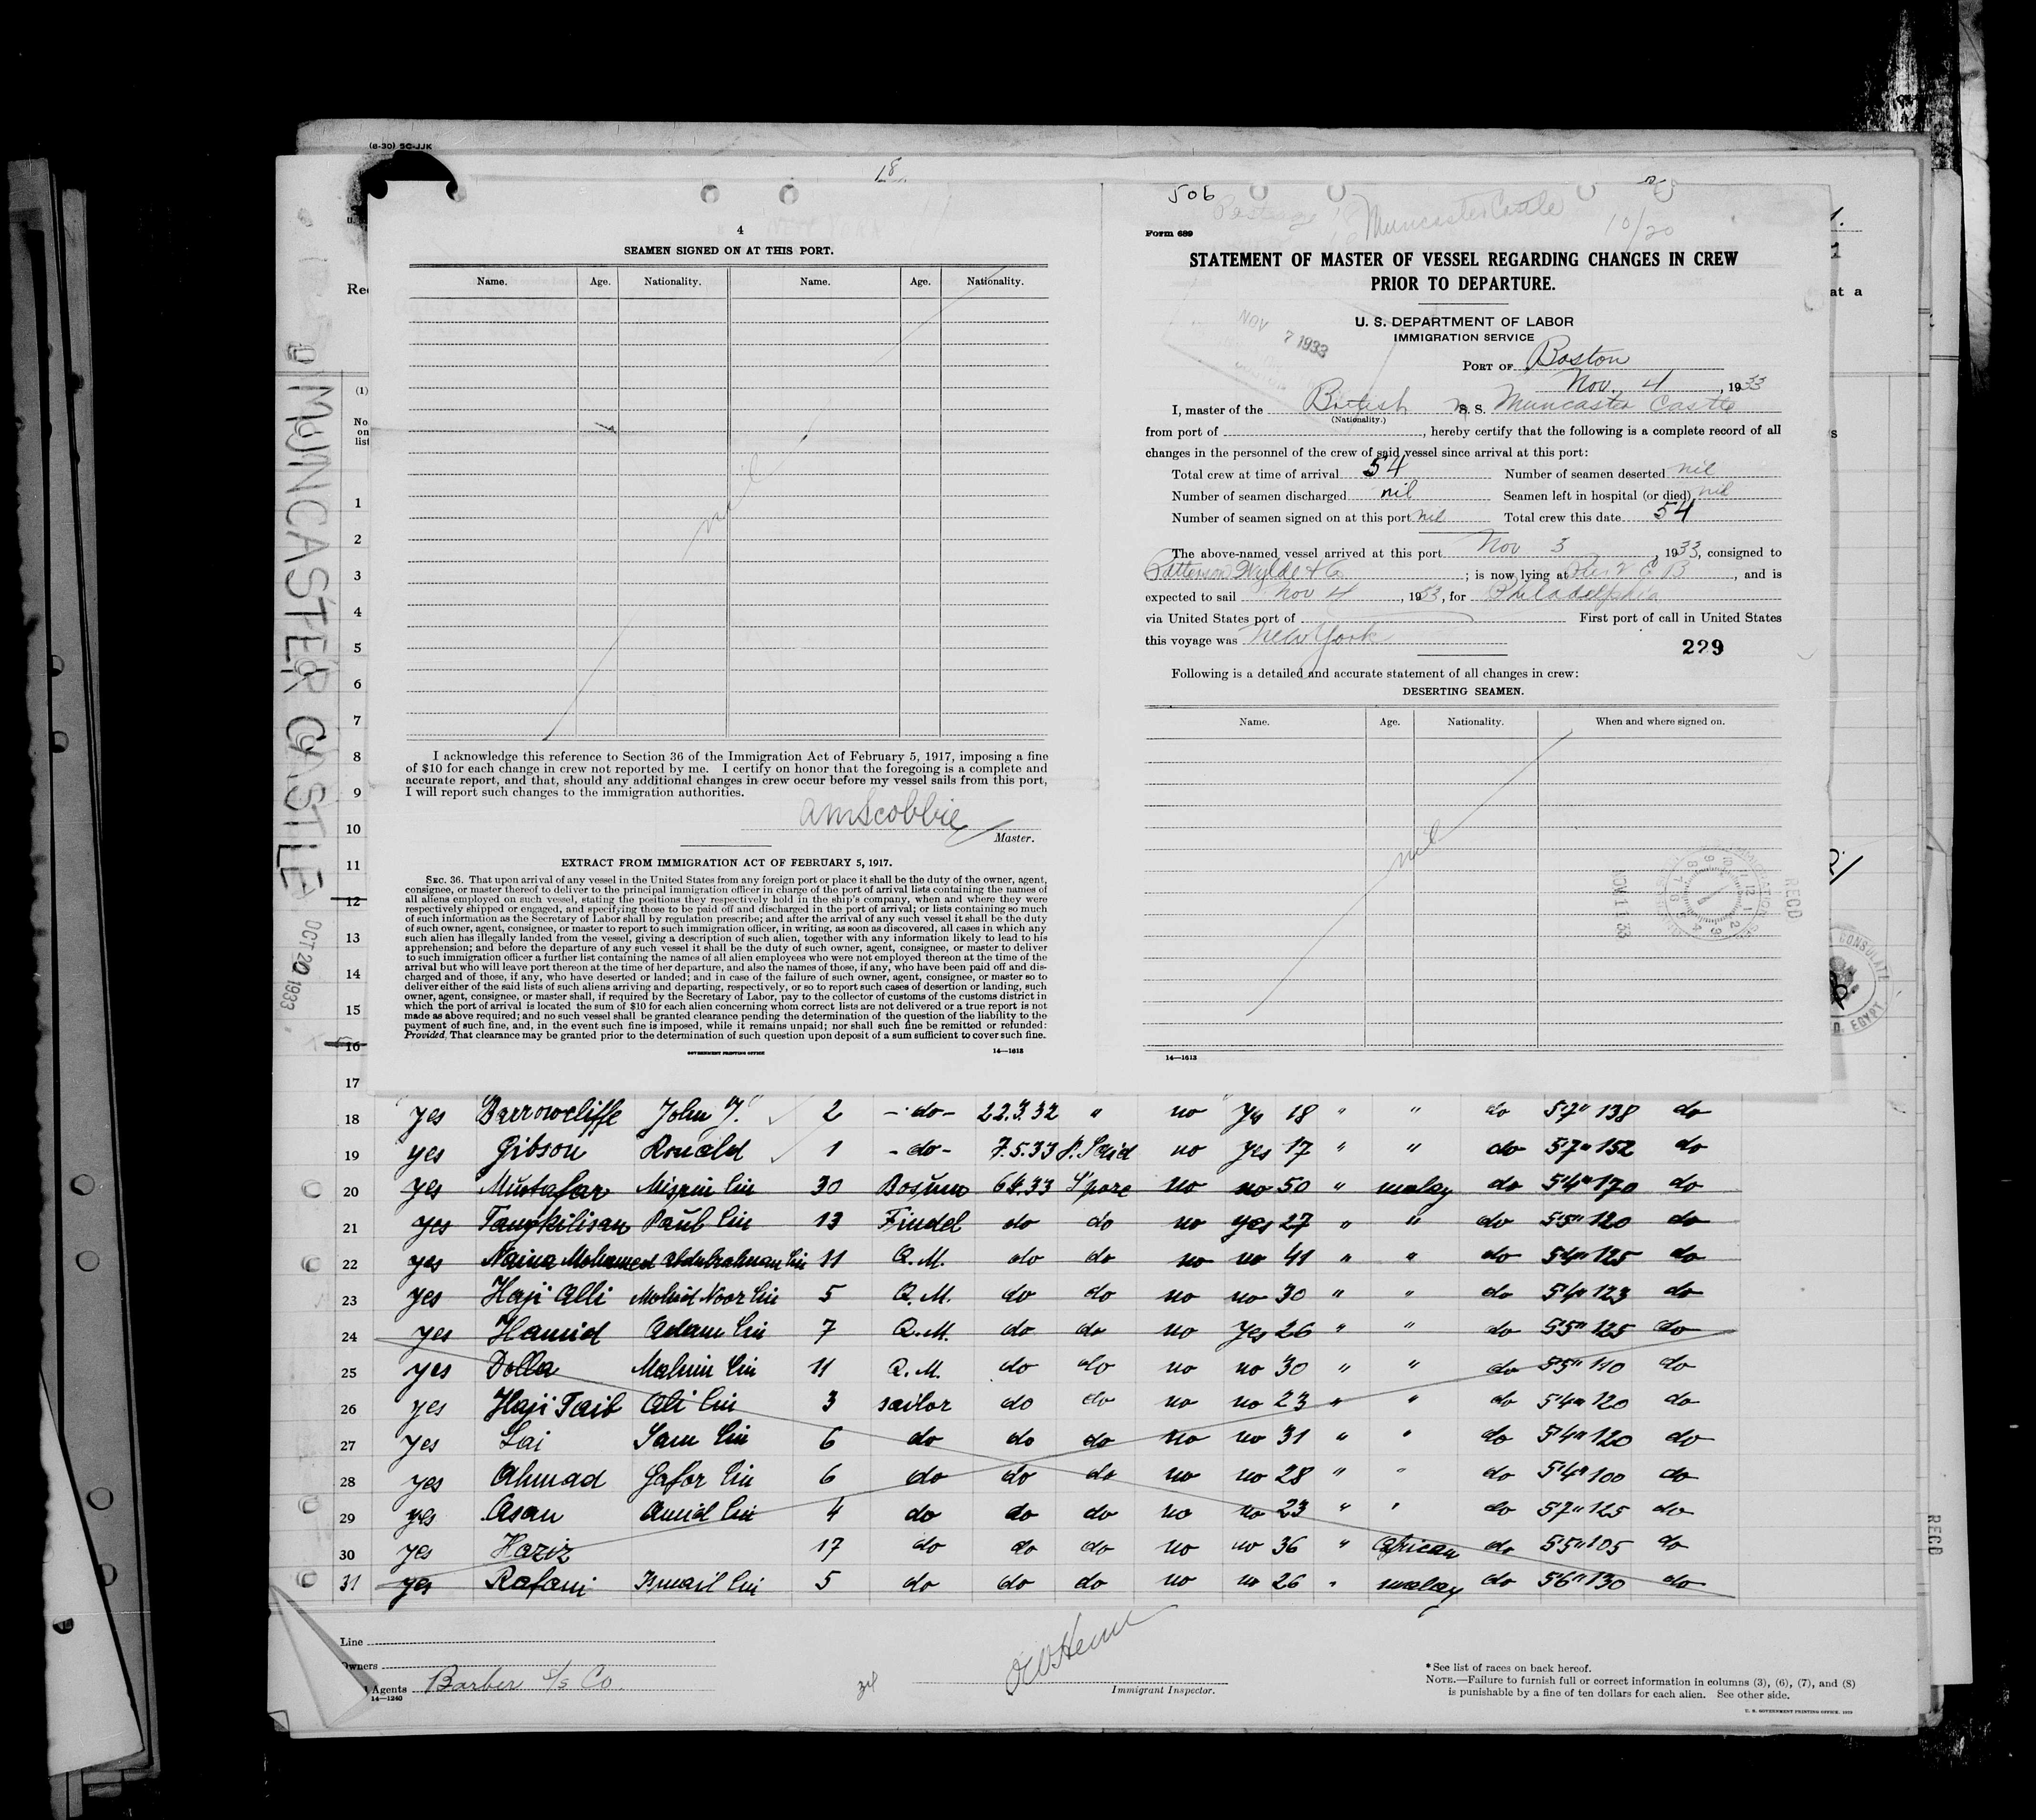 (6-30) 9C-JJK
18
4
SEAMEN SIGNED ON AT THIS PORT.
Name. Age. Nationality. Name. Age. Nationality.
nil
I acknowledge this reference to Section 36 of the Immigration Act of February 5, 1917, imposing a fine
of $10 for each change in crew not reported by me. I certify on honor that the foregoing is a complete and
accurate report, and that, should any additional changes in crew occur before my vessel sails from this port,
I will report such changes to the immigration authorities.
AMScobbie
Master.
EXTRACT FROM IMMIGRATION ACT OF FEBRUARY 5, 1917.
SEC. 36. That upon arrival of any vessel in the United States from any foreign port or place it shall be the duty of the owner, agent,
consignee, or master thereof to deliver to the principal immigration officer in charge of the port of arrival lists containing the names of
all aliens employed on such vessel, stating the positions they respectively hold in the ship's company, when and where they were
respectively shipped or engaged, and specifying those to be paid off and discharged in the port of arrival; or lists containing so much
of such information as the Secretary of Labor shall by regulation prescribe; and after the arrival of any such vessel it shall be the duty
of such owner, agent, consignee, or master to report to such immigration officer, in writing, as soon as discovered, all cases in which any
such alien has illegally landed from the vessel, giving a description of such alien, together with any information likely to lead to his
apprehension; and before the departure of any such vessel it shall be the duty of such owner, agent, consignee, or master to deliver
to such immigration officer a further list containing the names of all alien employees who were not employed thereon at the time of the
arrival but who will leave port thereon at the time of her departure, and also the names of those, if any, who have been paid off and dis-
charged and of those, if any, who have deserted or landed; and in case of the failure of such owner, agent, consignee, or master so to
deliver either of the said lists of such aliens arriving and departing, respectively, or so to report such cases of desertion or landing, such
owner, agent, consignee, or master shall, if required by the Secretary of Labor, pay to the collector of customs of the customs district in
which the port of arrival is located the sum of $10 for each alien concerning whom correct lists are not delivered or a true report is not
made as above required; and no such vessel shall be granted clearance pending the determination of the question of the liability to the
payment of such fine, and, in the event such fine is imposed, while it remains unpaid; nor shall such fine be remitted or refunded:
Provided, That clearance may be granted prior to the determination of such question upon deposit of a sum sufficient to cover such fine.
GOVERNMENT PRINTING OFFICE 14—1613
506
Muncaster Castle
10/20
Form 689
STATEMENT OF MASTER OF VESSEL REGARDING CHANGES IN CREW
PRIOR TO DEPARTURE.
U. S. DEPARTMENT OF LABOR
IMMIGRATION SERVICE
NOV 7 1933
PORT OF Boston
Nov. 4, 1933
I, master of the British S. S. Muncaster Castle
(Nationality.)
from port of , hereby certify that the following is a complete record of all
changes in the personnel of the crew of said vessel since arrival at this port:
Total crew at time of arrival 54 Number of seamen deserted nil
Number of seamen discharged nil Seamen left in hospital (or died) nil
Number of seamen signed on at this port nil Total crew this date 54
The above-named vessel arrived at this port Nov 3, 1933, consigned to
Patterson Wylde & Co ; is now lying at , and is
expected to sail Nov 4, 1933, for Philadelphia
via United States port of First port of call in United States
this voyage was New York
229
Following is a detailed and accurate statement of all changes in crew:
DESERTING SEAMEN.
Name. Age. Nationality. When and where signed on.
nil
NOV 11 33
RECD
14—1613
MUNCASTER CASTLE
OCT 20 1933
(1)
No.
on
list
1
2
3
4
5
6
7
8
9
10
11
12
13
14
15
16
17
18 yes Barrowcliffe John Y. 2 -do- 22.3.32 " no yes 18 " " do 5'7" 138 do
19 yes Gibson Ronald 1 -do- 7.5.33 P. Said no yes 17 " " do 5'7" 152 do
20 yes Mustafar Misrin bin 30 Bosun 6.4.33 S'pore no no 50 " malay do 5'4" 170 do
21 yes Tangkilisan Paul bin 13 Tindel do do no yes 27 " " do 5'5" 120 do
22 yes Naina Mohamed Abdulrahman bin 11 Q.M. do do no no 41 " " do 5'4" 125 do
23 yes Haji Alli Mohid Noor bin 5 Q.M. do do no no 30 " " do 5'4" 123 do
24 yes Hamid Adam bin 7 Q.M. do do no yes 26 " " do 5'5" 125 do
25 yes Dolla Mahin bin 11 Q.M. do do no no 30 " " do 5'5" 110 do
26 yes Haji Taib Ali bin 3 sailor do do no no 23 " " do 5'4" 120 do
27 yes Lai Sam bin 6 do do do no no 31 " " do 5'4" 120 do
28 yes Ahmad Gafor bin 6 do do do no no 28 " " do 5'4" 100 do
29 yes Asan Amid bin 4 do do do no no 23 " " do 5'7" 125 do
30 yes Haziz 17 do do do no no 36 " African do 5'5" 105 do
31 yes Rafani Ismail bin 5 do do do no no 26 " malay do 5'6" 130 do
Line
Owners
Agents Barber S/S Co.
14—1240
Immigrant Inspector.
* See list of races on back hereof.
NOTE.—Failure to furnish full or correct information in columns (3), (6), (7), and (8)
is punishable by a fine of ten dollars for each alien. See other side.
U. S. GOVERNMENT PRINTING OFFICE. 1929
RECD
at a
CONSULATE
EGYPT